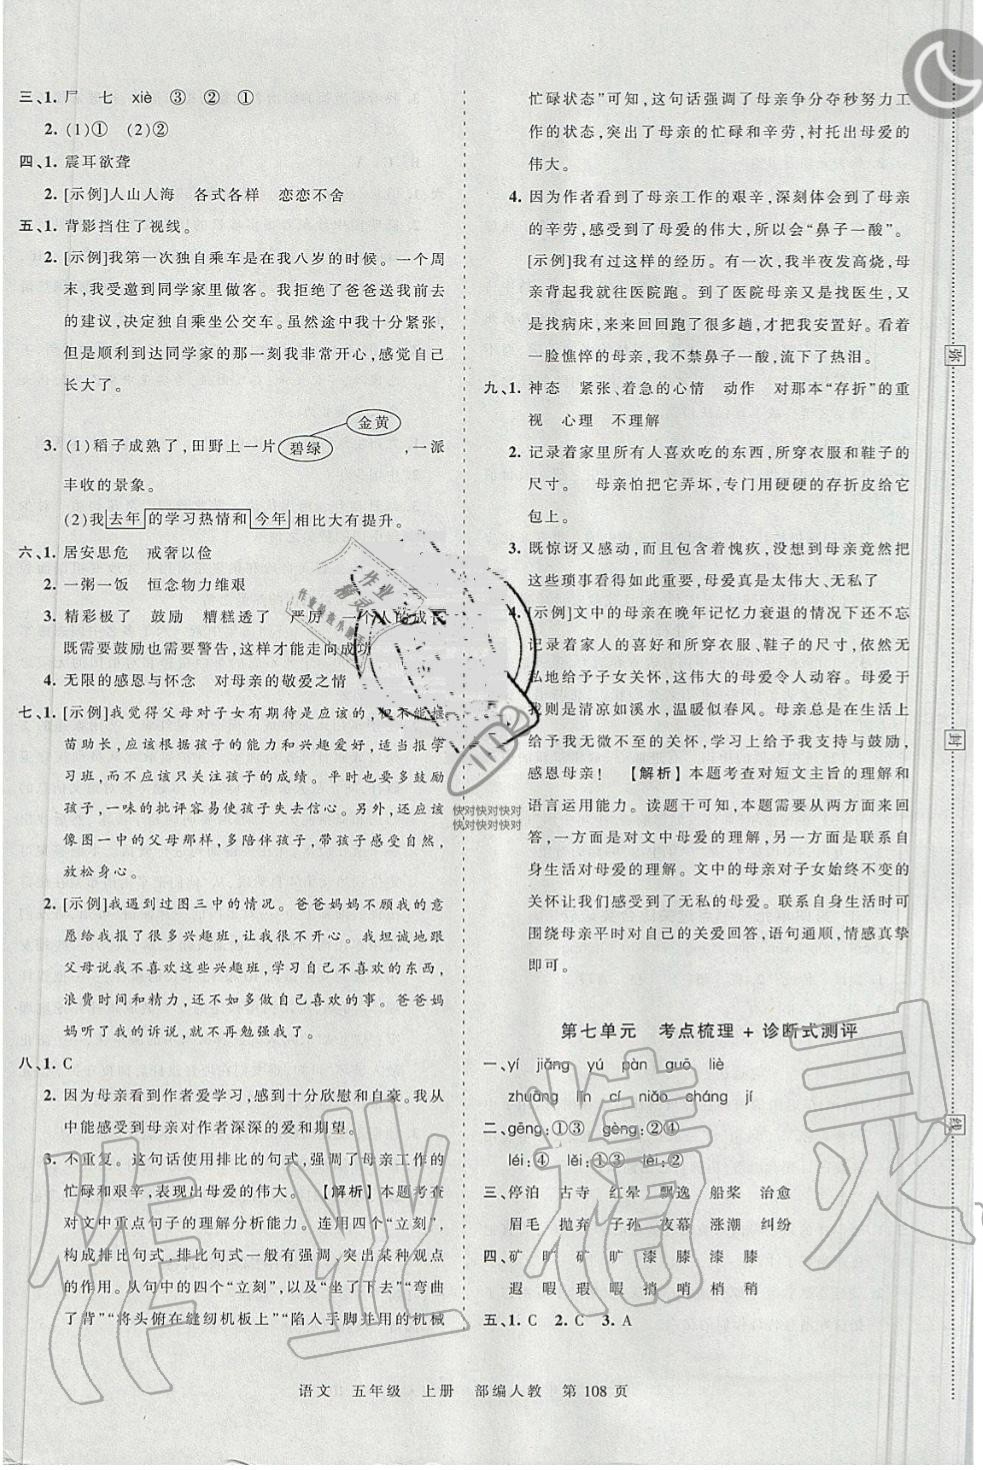 三、1. 尸 七 xiè ③ ② ①
2. (1)① (2)②
四、1. 震耳欲聋
2. [示例]人山人海 各式各样 恋恋不舍
五、1. 背影挡住了视线。
2. [示例]我第一次独自乘车是在我八岁的时候。一个周
末,我受邀到同学家里做客。我拒绝了爸爸送我前去
的建议,决定独自乘坐公交车。虽然途中我十分紧张,
但是顺利到达同学家的那一刻我非常开心,感觉自己
长大了。
金黄
3. (1)稻子成熟了,田野上一片碧绿,一派
丰收的景象。
(2)我去年的学习热情和今年相比大有提升。
六、1. 居安思危 戒奢以俭
2. 一粥一饭 恒念物力维艰
3. 精彩极了 鼓励 糟糕透了 严厉 一个人的成长
既需要鼓励也需要警告,这样才能走向成功
4. 无限的感恩与怀念 对母亲的敬爱之情
七、1. [示例]我觉得父母对子女有期待是应该的,但不能揠
苗助长,应该根据孩子的能力和兴趣爱好,适当报学
习班,而不应该只关注孩子的成绩。平时也要多鼓励
孩子,一味的批评容易使孩子失去信心。另外,还应该
像图一中的父母那样,多陪伴孩子,带孩子亲近自然,
放松身心。
2. [示例]我遇到过图三中的情况。爸爸妈妈不顾我的意
愿给我报了很多兴趣班,让我很不开心。我坦诚地跟
父母说我不喜欢这些兴趣班,学习自己不喜欢的东西,
浪费时间和精力,还没有自己喜欢的事。爸爸妈
妈听了我的诉说,就不再勉强我了。
八、1. C
2. 因为母亲看到作者爱学习,感到十分欣慰和开心。从
中能感受到母亲对作者深深的爱和期望。
3. 不重复。这句话使用排比的句式,强调了母亲工作的
忙碌和艰辛,表现出母爱的伟大。 【解析】本题考查
对文中重点句子的理解分析能力。连用四个“立刻”,
构成排比句式,排比句式一般有强调、突出某种观点
的作用。从句中的四个“立刻”,以及“坐了下去”“弯曲
了背”“将头俯在缝纫机板上”“陷入手脚并用的机械
忙碌状态”可知,这句话强调了母亲争分夺秒努力工
作的状态,突出了母亲的忙碌和辛劳,衬托出母爱的
伟大。
4. 因为作者看到了母亲工作的艰辛,深刻体会到了母亲
的辛劳,感受到了母爱的伟大,所以会“鼻子一酸”。
[示例]我有过这样的经历。我半夜发高烧,母
亲背起我就往医院跑。到了医院母亲又找医生,又
是找病床,来来回回跑了很多趟,才把我安置好。看着
一脸憔悴的母亲,我不禁鼻子一酸,流下了热泪。
九、1. 神态 紧张、着急的心情 动作 对那本“存折”的重
视 心理 不理解
2. 记录着家里所有人喜欢吃的东西,所穿衣服和鞋子的
尺寸。 母亲怕把它弄坏,专门用硬硬的存折皮给它
包上。
3. 既惊讶又感动,而我则含着愧疚,没想到母亲会关注
这些琐事看得那么重,母爱真的太伟大、太无私了
4. [示例]文中的母亲在晚年记忆力衰退的情况下还努力
记录着儿女的喜好和所穿衣服、鞋子的尺寸,依然无
私地给予子女关怀,这伟大的母爱令人动容。母爱于
我则是清凉如溪水,温暖似春风。母亲总是在生活上
给予我无微不至的关怀,学习上给予我支持与鼓励,
感恩母亲! 【解析】本题考查对短文主旨的理解和
语言运用能力。读题干可知,本题需从两方面来回
答,一方面是对文中母爱的理解,另一方面是联系自
身生活对母爱的理解。文中的母亲对子女始终不变的
关怀让我们感受到了无私的母爱。联系自身生活时可
围绕母亲平时对自己的关爱回答,语句通顺,情感真挚
即可。
第七单元 考点梳理 + 诊断式测评
一、yí jiǎng yú pàn guō liè
zhuāng lín cí niǎo cháng jí
二、gēng:①③ gèng:②④
léi:④ lěi:①③ lèi:②
三、停泊 古寺 红晕 飘逸 船桨 治愈
眉毛 抛弃 子孙 夜幕 涨潮 纠纷
四、矿 旷 矿 旷 漆 膝 漆 膝
遐 暇 瑕 暇 捎 哨 梢 稍
五、1. C 2. C 3. A
弥
封
线
作业精灵
快对快对快对
快对快对快对
语文 五年级 上册 部编人教 第 108 页